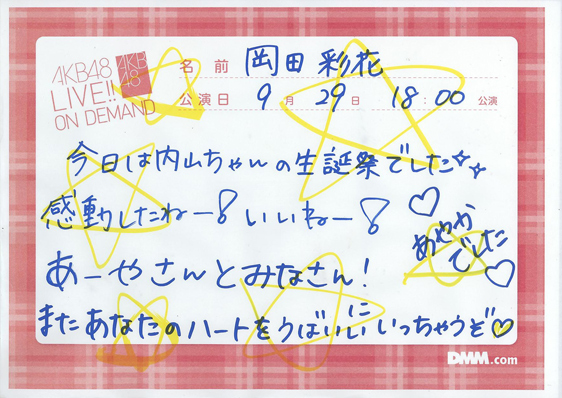 AKB48
LIVE!!
ON DEMAND
AKB
48
名前 岡田彩花
公演日 9月29日 18:00公演
今日は内山ちゃんの生誕祭でした☆☆
感動したねー!いいねー! ♡
あーやさんとみなさん!
またあなたのハートをうばいにいっちゃうぞ♡
あやか
でした
♡
DMM.com